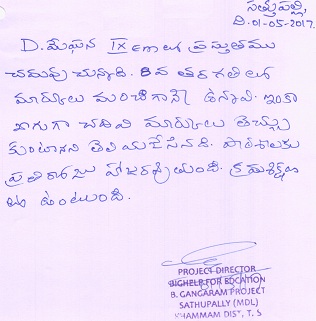 సత్తుపల్లి,
ది.01-05-2017.
D. మేఘన IX class లో ప్రస్తుతము
చదువు చున్నాది. 8వ తరగతి లో
మార్కులు మంచిగానే ఉన్నావి. ఇంకా
బాగుగా చదివి మార్కులు తెచ్చు
కుంటానని తెలియజేసినది. పాఠశాలకు
ప్రతిరోజు హాజరప్తుయింది. క్రమశిక్షణ
తో ఉంటుంది.
PROJECT DIRECTOR
BIGHELP FOR EDCATION
B. GANGARAM PROJECT
SATHUPALLY (MDL)
KHAMMAM DIST, T. S